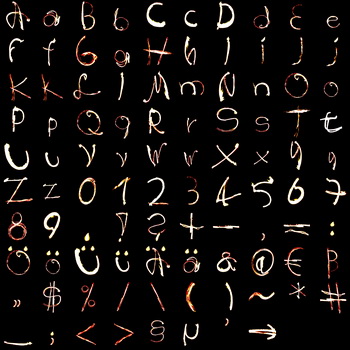 A a B b C c D d E e
F f G g H h I i J j
K k L l M m N n O o
P p Q q R r S s T t
U u V v W w X x Y y
Z z 0 1 2 3 4 5 6 7
8 9 . ! ? + - , = :
Ö ö Ü ü Ä ä å @ € ß
" $ % / \ ( ) ~ * #
_ ; < > § µ ' →